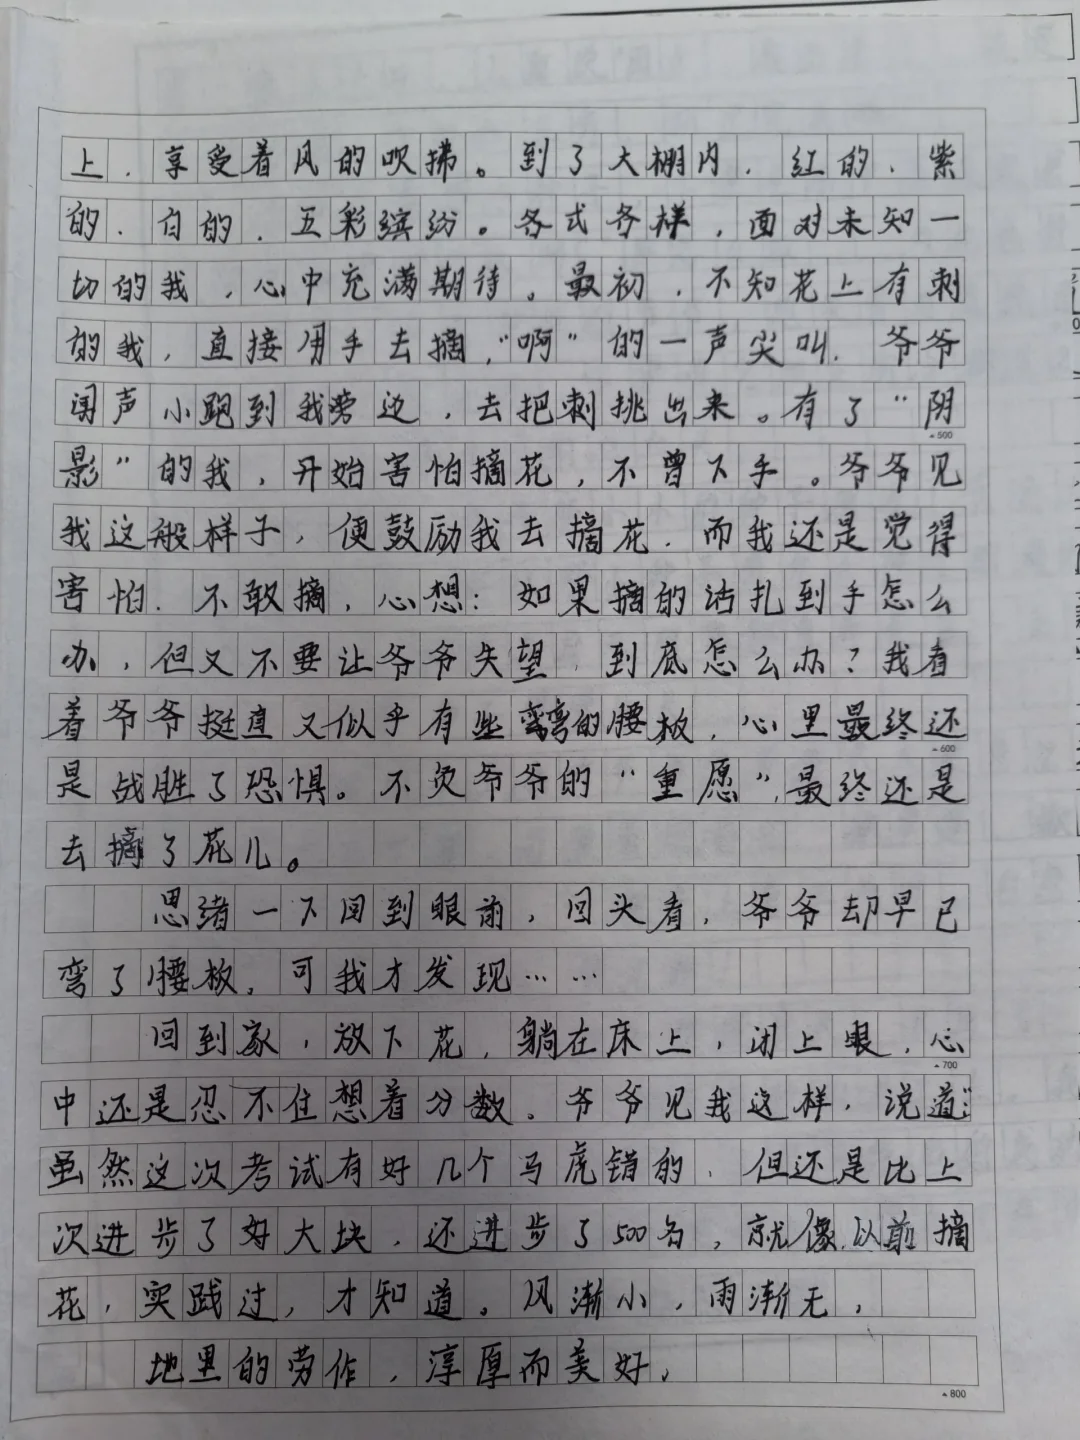 上，享受着风的吹拂。到了大棚内，红的、紫
的、白的，五彩缤纷。各式各样，面对未知一
切的我，心中充满期待。最初，不知花上有刺
的我，直接用手去摘，“啊”的一声尖叫，爷爷
闻声小跑到我旁边，去把刺挑出来。有了“阴
影”的我，开始害怕摘花，不曾下手。爷爷见
我这般样子，便鼓励我去摘花，而我还是觉得
害怕，不敢摘，心想：如果摘的话扎到手怎么
办，但又不要让爷爷失望，到底怎么办？我看
着爷爷挺直又似乎有些弯弯的腰板，心里最终还
是战胜了恐惧。不负爷爷的“重愿”，最终还是
去摘了花儿。
思绪一下回到眼前，回头看，爷爷却早已
弯了腰板，可我才发现……
回到家，放下花，躺在床上，闭上眼，心
中还是忍不住想着分数。爷爷见我这样，说道：“
虽然这次考试有好几个马虎错的，但还是比上
次进步了好大块，还进步了500名，就像以前摘
花，实践过，才知道。风渐小，雨渐无，
地里的劳作，淳厚而美好。
▲500
▲600
▲700
▲800